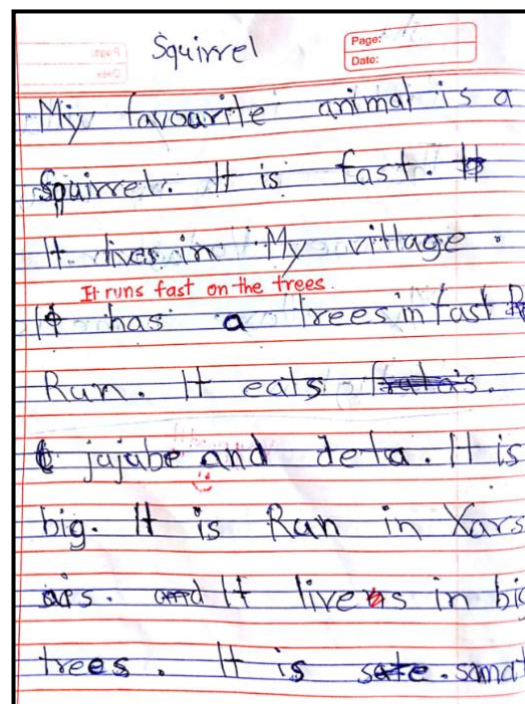 Squirrel
Page:
Date:
My favourite animal is a
Squirrel. It is fast.
It lives in My village.
It runs fast on the trees.
It has a trees in fast R
Run. It eats
jajabe and deta. It is
big. It is Run in Xars
and It lives in big
trees. It is smal